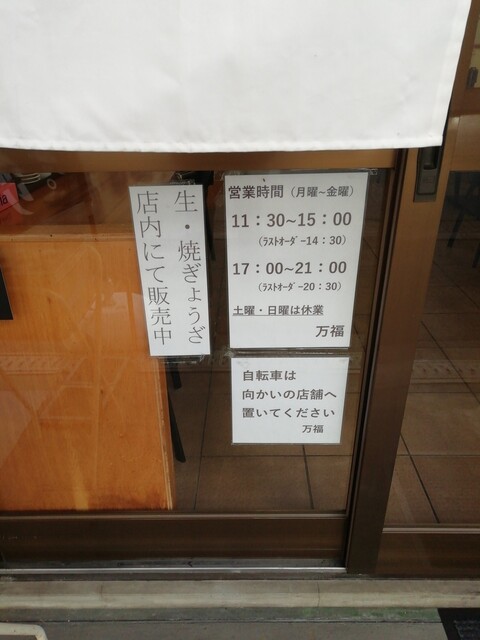 生・焼ぎょうざ
店内にて販売中
営業時間（月曜~金曜）
11：30~15：00
（ﾗｽﾄｵｰﾀﾞｰ14：30）
17：00~21：00
（ﾗｽﾄｵｰﾀﾞｰ20：30）
土曜・日曜は休業
万福
自転車は
向かいの店舗へ
置いてください
万福